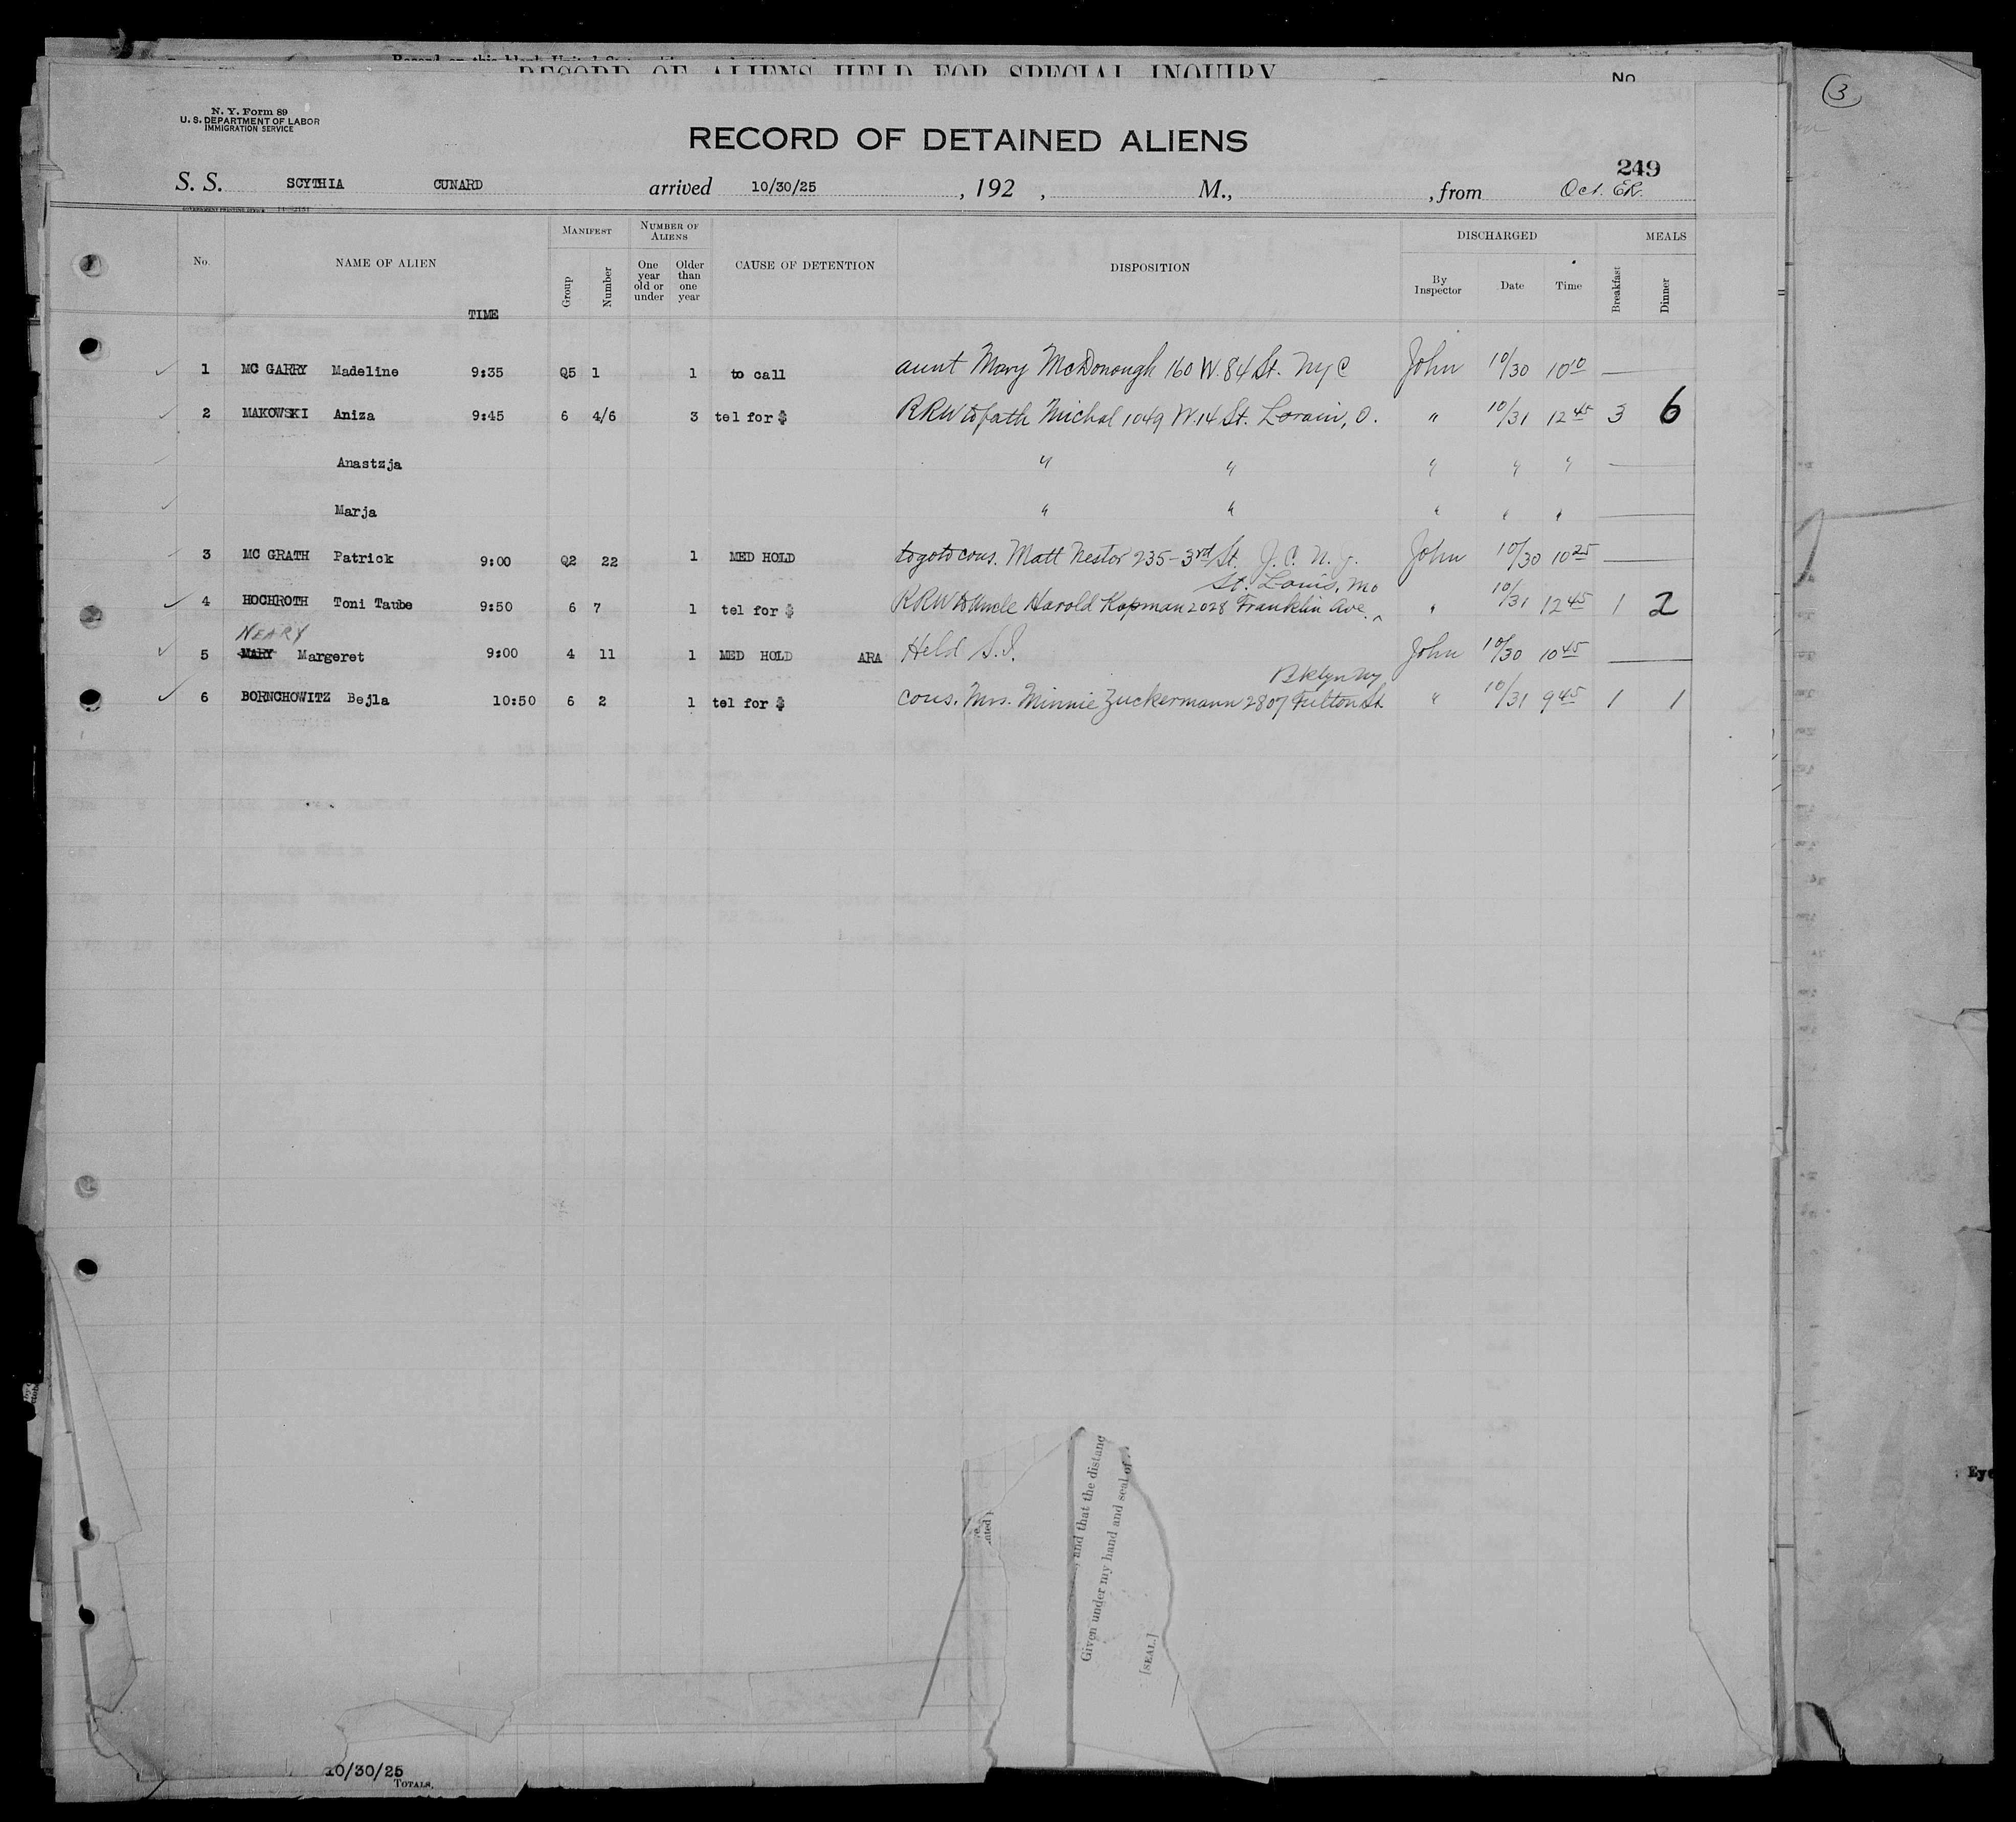 RECORD OF ALIENS HELD FOR SPECIAL INQUIRY
No
N. Y. Form 89
U. S. DEPARTMENT OF LABOR
IMMIGRATION SERVICE
RECORD OF DETAINED ALIENS
249
S. S. SCYTHIA CUNARD arrived 10/30/25, 192 , M., , from Oct. ER.
No. NAME OF ALIEN TIME MANIFEST Group Number NUMBER OF ALIENS One year old or under Older than one year CAUSE OF DETENTION DISPOSITION DISCHARGED By Inspector Date Time MEALS Breakfast Dinner
1 MC GARRY Madeline 9:35 Q5 1 1 to call aunt Mary McDonough 160 W. 84 St. NyC John 10/30 10 10 —
2 MAKOWSKI Aniza 9:45 6 4/6 3 tel for $ RRW to fath Michal 1049 W.14 St. Lorain, O. " 10/31 12 45 3 6
Anastzja " " " " " —
Marja " " " " " —
3 MC GRATH Patrick 9:00 Q2 22 1 MED HOLD to go to cous. Matt Nestor 235-3rd St. J.C. N.J. John 10/30 10 25 —
St. Louis, Mo
4 HOCHROTH Toni Taube 9:50 6 7 1 tel for $ RRW to Uncle Harold Kopman 2028 Franklin Ave. " 10/31 12 45 1 2
NEARY
5 MARY Margeret 9:00 4 11 1 MED HOLD ARA Held S.I. John 10/30 10 45 —
Bklyn Ny
6 BORNCHOWITZ Bejla 10:50 6 2 1 tel for $ cous. Mrs. Minnie Zuckermann 2807 Fulton St. " 10/31 9 45 1 1
, and that the distang
Given under my hand and seal of
[SEAL.]
10/30/25
TOTALS.
3
Eye